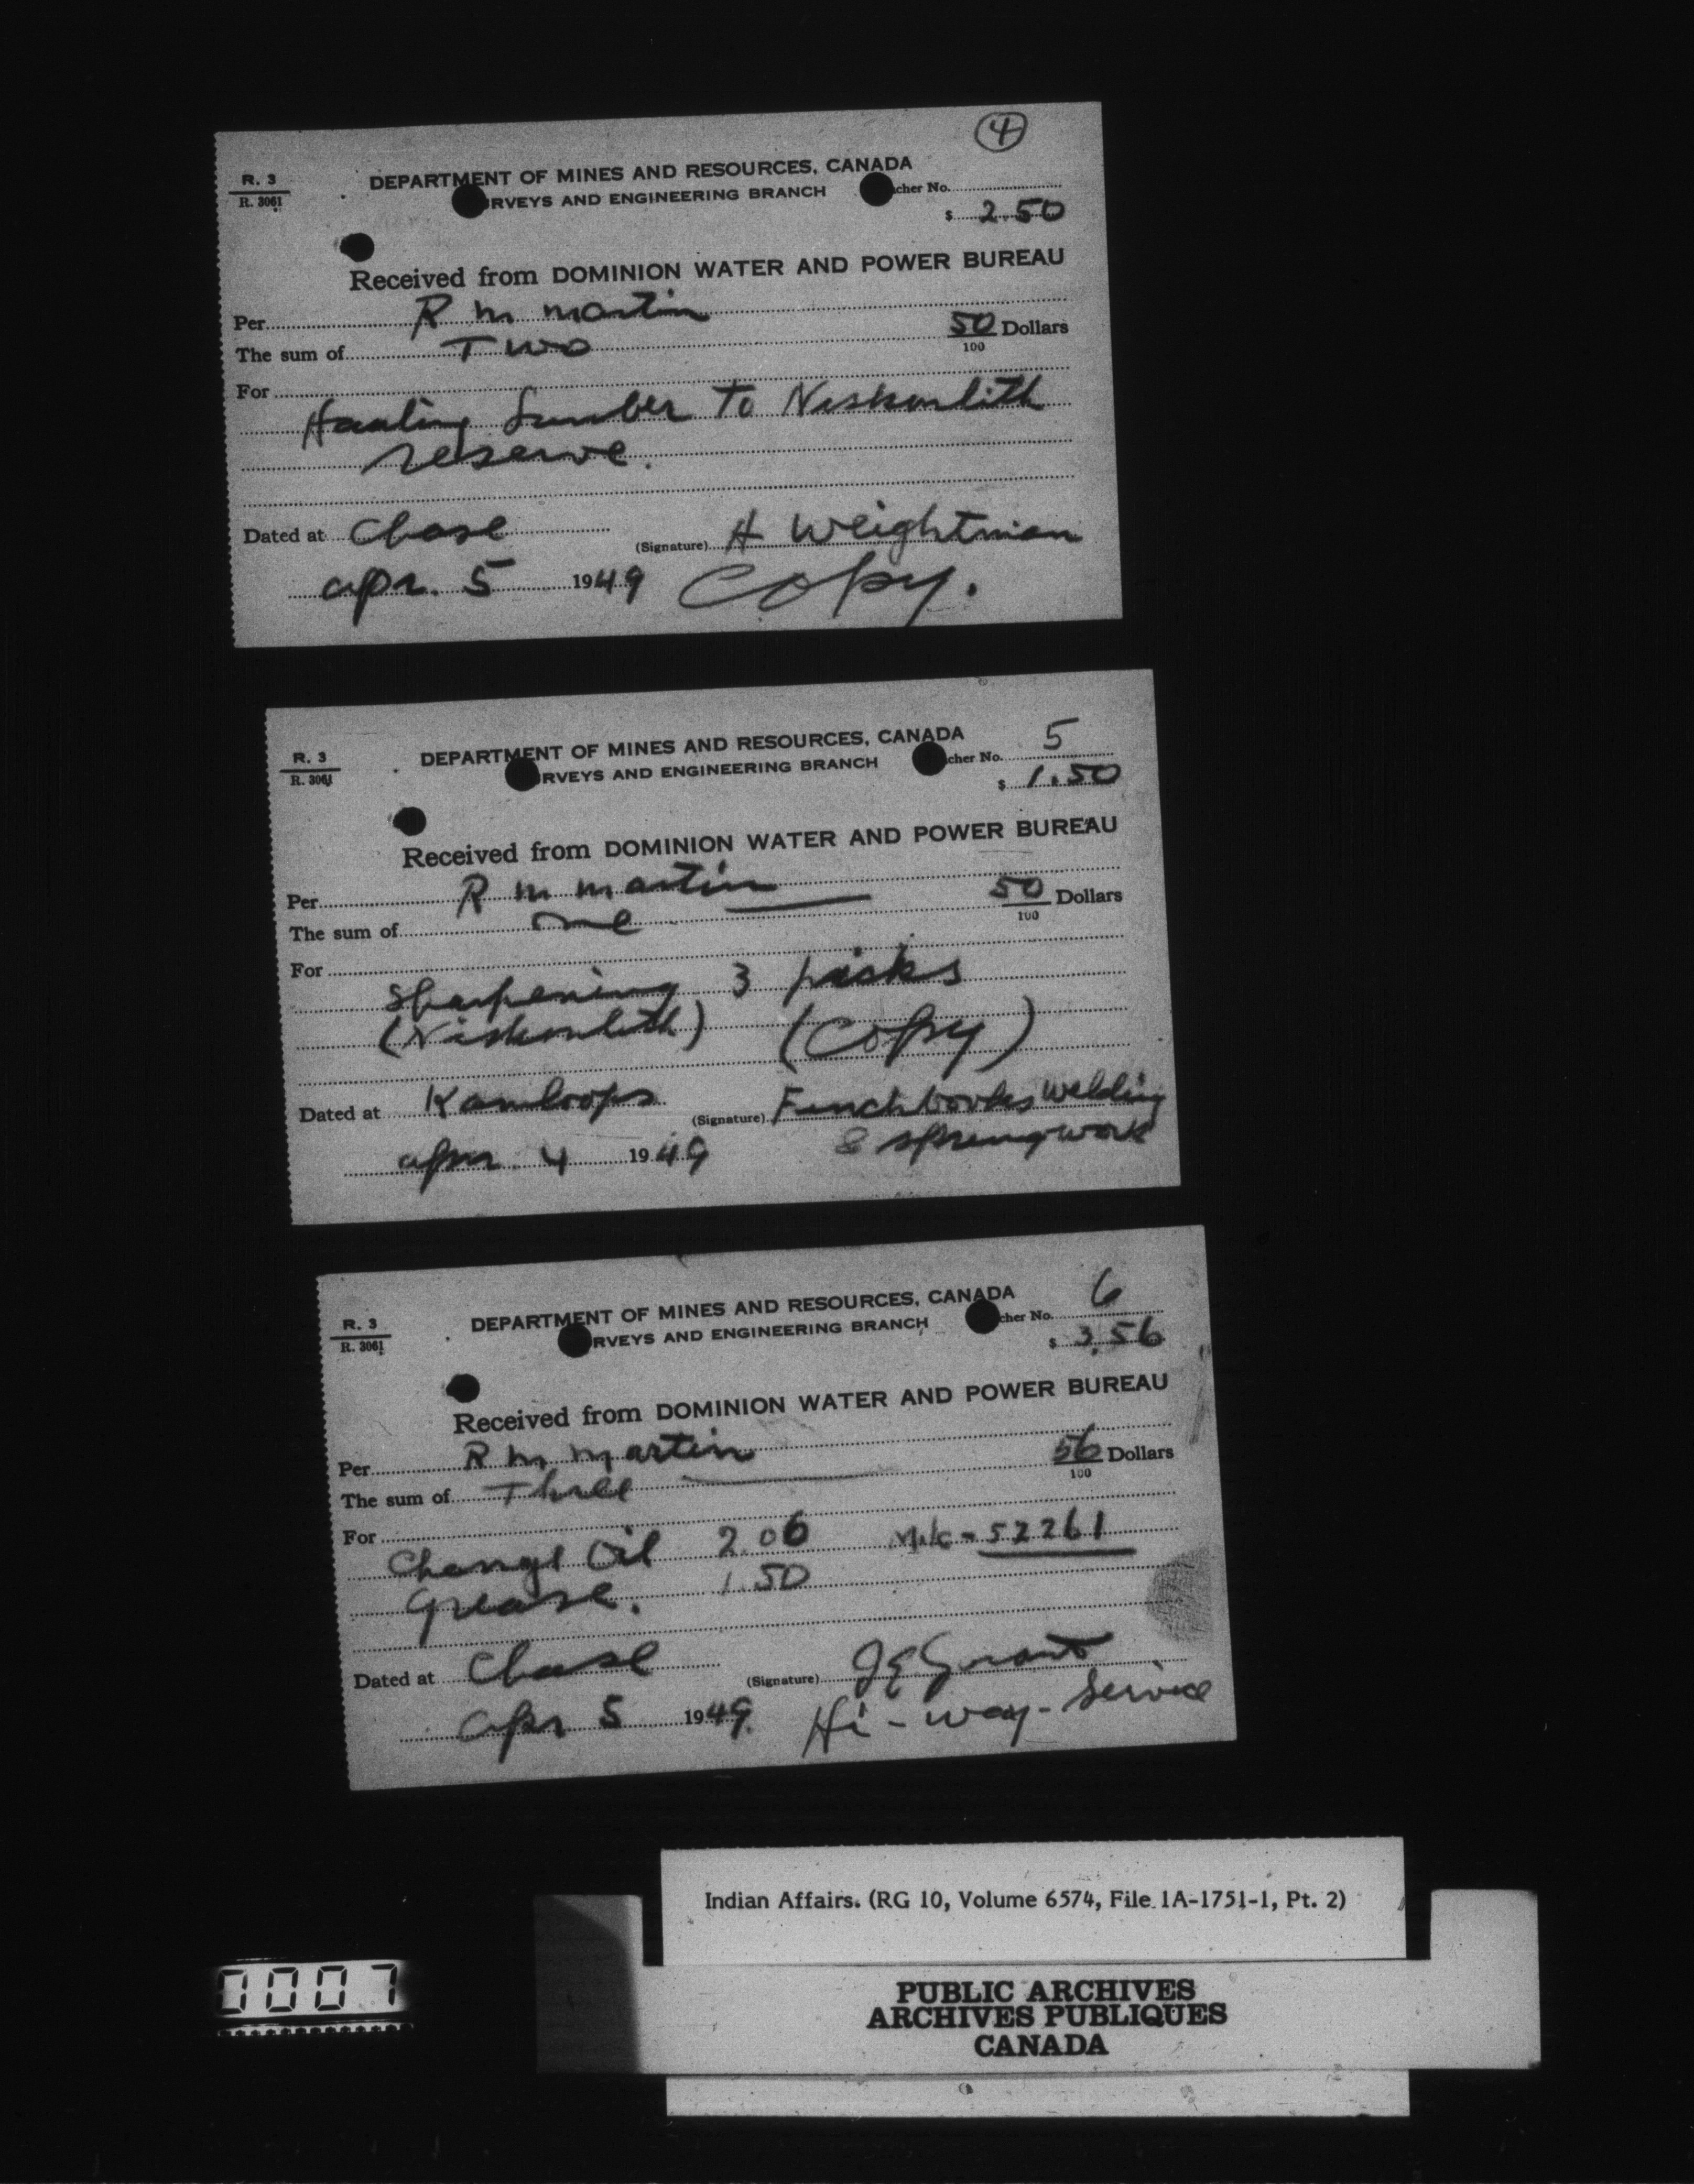 4
R. 3
R. 3061
DEPARTMENT OF MINES AND RESOURCES, CANADA
RVEYS AND ENGINEERING BRANCH
cher No.
$ 2.50
Received from DOMINION WATER AND POWER BUREAU
Per R M Martin
The sum of Two 50/100 Dollars
For
Hauling Lumber To Neskonlith
reserve.
Dated at Chase (Signature) H Weightman
Apr. 5 1949 Copy.
R. 3
R. 3061
DEPARTMENT OF MINES AND RESOURCES, CANADA
RVEYS AND ENGINEERING BRANCH
cher No. 5
$ 1.50
Received from DOMINION WATER AND POWER BUREAU
Per R M Martin
The sum of one 50/100 Dollars
For
Sharpening 3 picks
(Niskonlith) (Copy)
Dated at Kamloops (Signature) Welding
apr. 4 1949 & spring work
R. 3
R. 3061
DEPARTMENT OF MINES AND RESOURCES, CANADA
RVEYS AND ENGINEERING BRANCH
cher No. 6
$ 3.56
Received from DOMINION WATER AND POWER BUREAU
Per R M Martin
The sum of Three 56/100 Dollars
For
Change Oil 2.06 52261
Grease. 1.50
Dated at Chase (Signature) J E Grant
Apr 5 1949. Hi-way-Service
Indian Affairs. (RG 10, Volume 6574, File 1A-1751-1, Pt. 2)
0007
PUBLIC ARCHIVES
ARCHIVES PUBLIQUES
CANADA